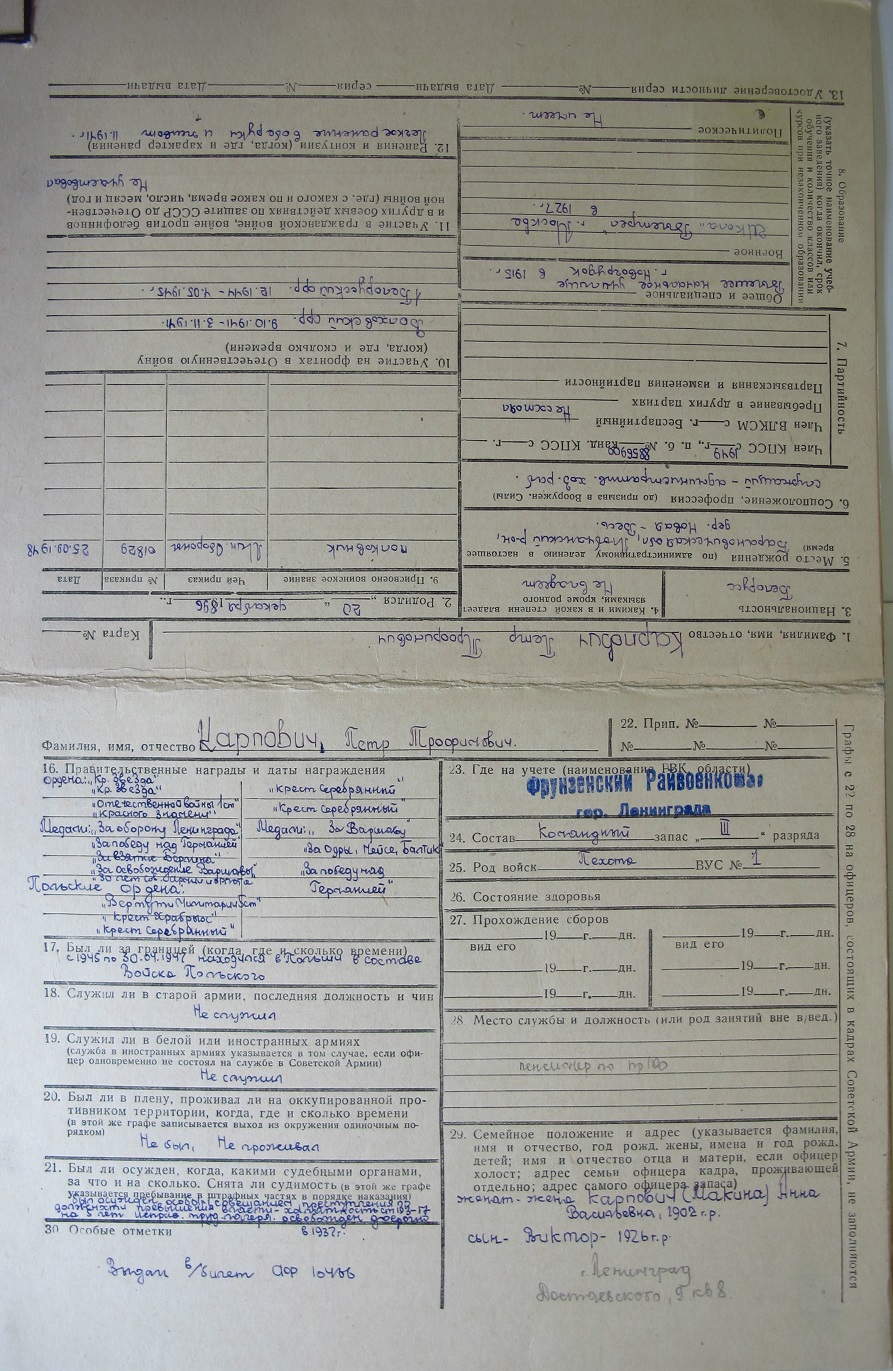 1. Фамилия, имя, отчество Карпович Петр Трофимович
Карта №
2. Родился „20“ декабря 1896 г.
3. Национальность Белорусс
4. Какими и в какой степени владеет языками, кроме родного
Не владеет
5. Место рождения (по административному делению в настоящее время) Барановичская обл.
дер. Новая-Весь.
6. Соцположение, профессия (до призыва в Вооружен. Силы)
служащий – административ. хоз. раб.
7. Партийность
Член КПСС с 1949 г., п. б. № Канд. КПСС с — г.
Член ВЛКСМ с — г. Беспартийный
Пребывание в других партиях Не состоял
Партвзыскания и изменения партийности
8. Образование
(указать точное наименование учеб-
ного заведения) когда окончил, срок
обучения и количество классов или
курсов при незаконченном образовании
Общее и специальное
Высшее начальное училище
г. Новогрудок в 1915 г.
Военное
Школа „Выстрел“ г. Москва
в 1927 г.
Политическое
Не имеет
9. Присвоено воинское звание
Чей приказ
№ приказа
Дата
полковник
Мин. Обороны
01829
25.09.1948
10. Участие на фронтах в Отечественную войну
(когда, где и сколько времени)
Волховский фр. 9.10.1941 – 3.11.1941.
1 Белорусский фр. 12.1944 – 4.05.1945 г.
11. Участие в гражданской войне, войне против белофиннов
и в других боевых действиях по защите СССР до Отечествен-
ной войны (где, с какого и по какое время, число, месяц и год)
Не участвовал
12. Ранения и контузии (когда, где и характер ранения)
Легкое ранение в обе руки и живот 11.1941 г.
13. Удостоверение личности серия — № — Дата выдачи — серия — № — Дата выдачи
Фамилия, имя, отчество Карпович, Петр Трофимович.
16. Правительственные награды и даты награждения
Ордена: „Кр. Звезда“
„Кр. Звезда“
„Отечественной войны 1 ст“
„Красного Знамени“
Медали: „За оборону Ленинграда“
„За победу над Германией“
„За взятие Берлина“
„За освобождение Варшавы“
Польские ордена:
„Виртути Милитари
„Крест Храбрых“
„Крест Серебрянный“
„Крест Серебрянный“
„Крест Серебрянный“
Медали: „За Варшаву“
„За Одру, Нейсе, Балтик
„За победу над
Германией“
17. Был ли за границей (когда, где и сколько времени)
находился в Польши в составе
Войска Польского
18. Служил ли в старой армии, последняя должность и чин
Не служил
19. Служил ли в белой или иностранных армиях
(служба в иностранных армиях указывается в том случае, если офи-
цер одновременно не состоял на службе в Советской Армии)
Не служил
20. Был ли в плену, проживал ли на оккупированной про-
тивником территории, когда, где и сколько времени
(в этой же графе записывается выход из окружения одиночным по-
рядком)
Не был, Не проживал
21. Был ли осужден, когда, какими судебными органами,
за что и на сколько. Снята ли судимость (в этой же графе
указывается пребывание в штрафных частях в порядке наказания)
был осужден особым совещанием преступления по
должности превышения власти – халатность ст 193-17
на 5 лет исправ. труд. лагеря. освобожден досрочно
в 1937 г.
30. Особые отметки
Выдан в/билет
22. Прип. №— №—
№— №—
23. Где на учете (наименование РВК, области)
Фрунзенский Райвоенкомат
гор. Ленинграда
24. Состав Командный запас „III“ разряда
25. Род войск Пехота ВУС № 1
26. Состояние здоровья
27. Прохождение сборов
—19—г.—дн. —19—г.—дн.
вид его вид его
—19—г.—дн. —19—г.—дн.
—19—г.—дн. —19—г.—дн.
28 Место службы и должность (или род занятий вне в/вед.)
пенсионер по пр 100
29. Семейное положение и адрес (указывается фамилия,
имя и отчество, год рожд. жены, имена и год рожд.
детей; имя и отчество отца и матери, если офицер
холост; адрес семьи офицера кадра, проживающей
отдельно; адрес самого офицера запаса)
женат – жена Карпович (Макина) Анна
Васильевна, 1902 г.р.
сын – Виктор – 1926 г.р.
г. Ленинград
Достаевского, 9 кв 8.
Графы с 22 по 28 на офицеров, состоящих в кадрах Советской Армии, не заполняются